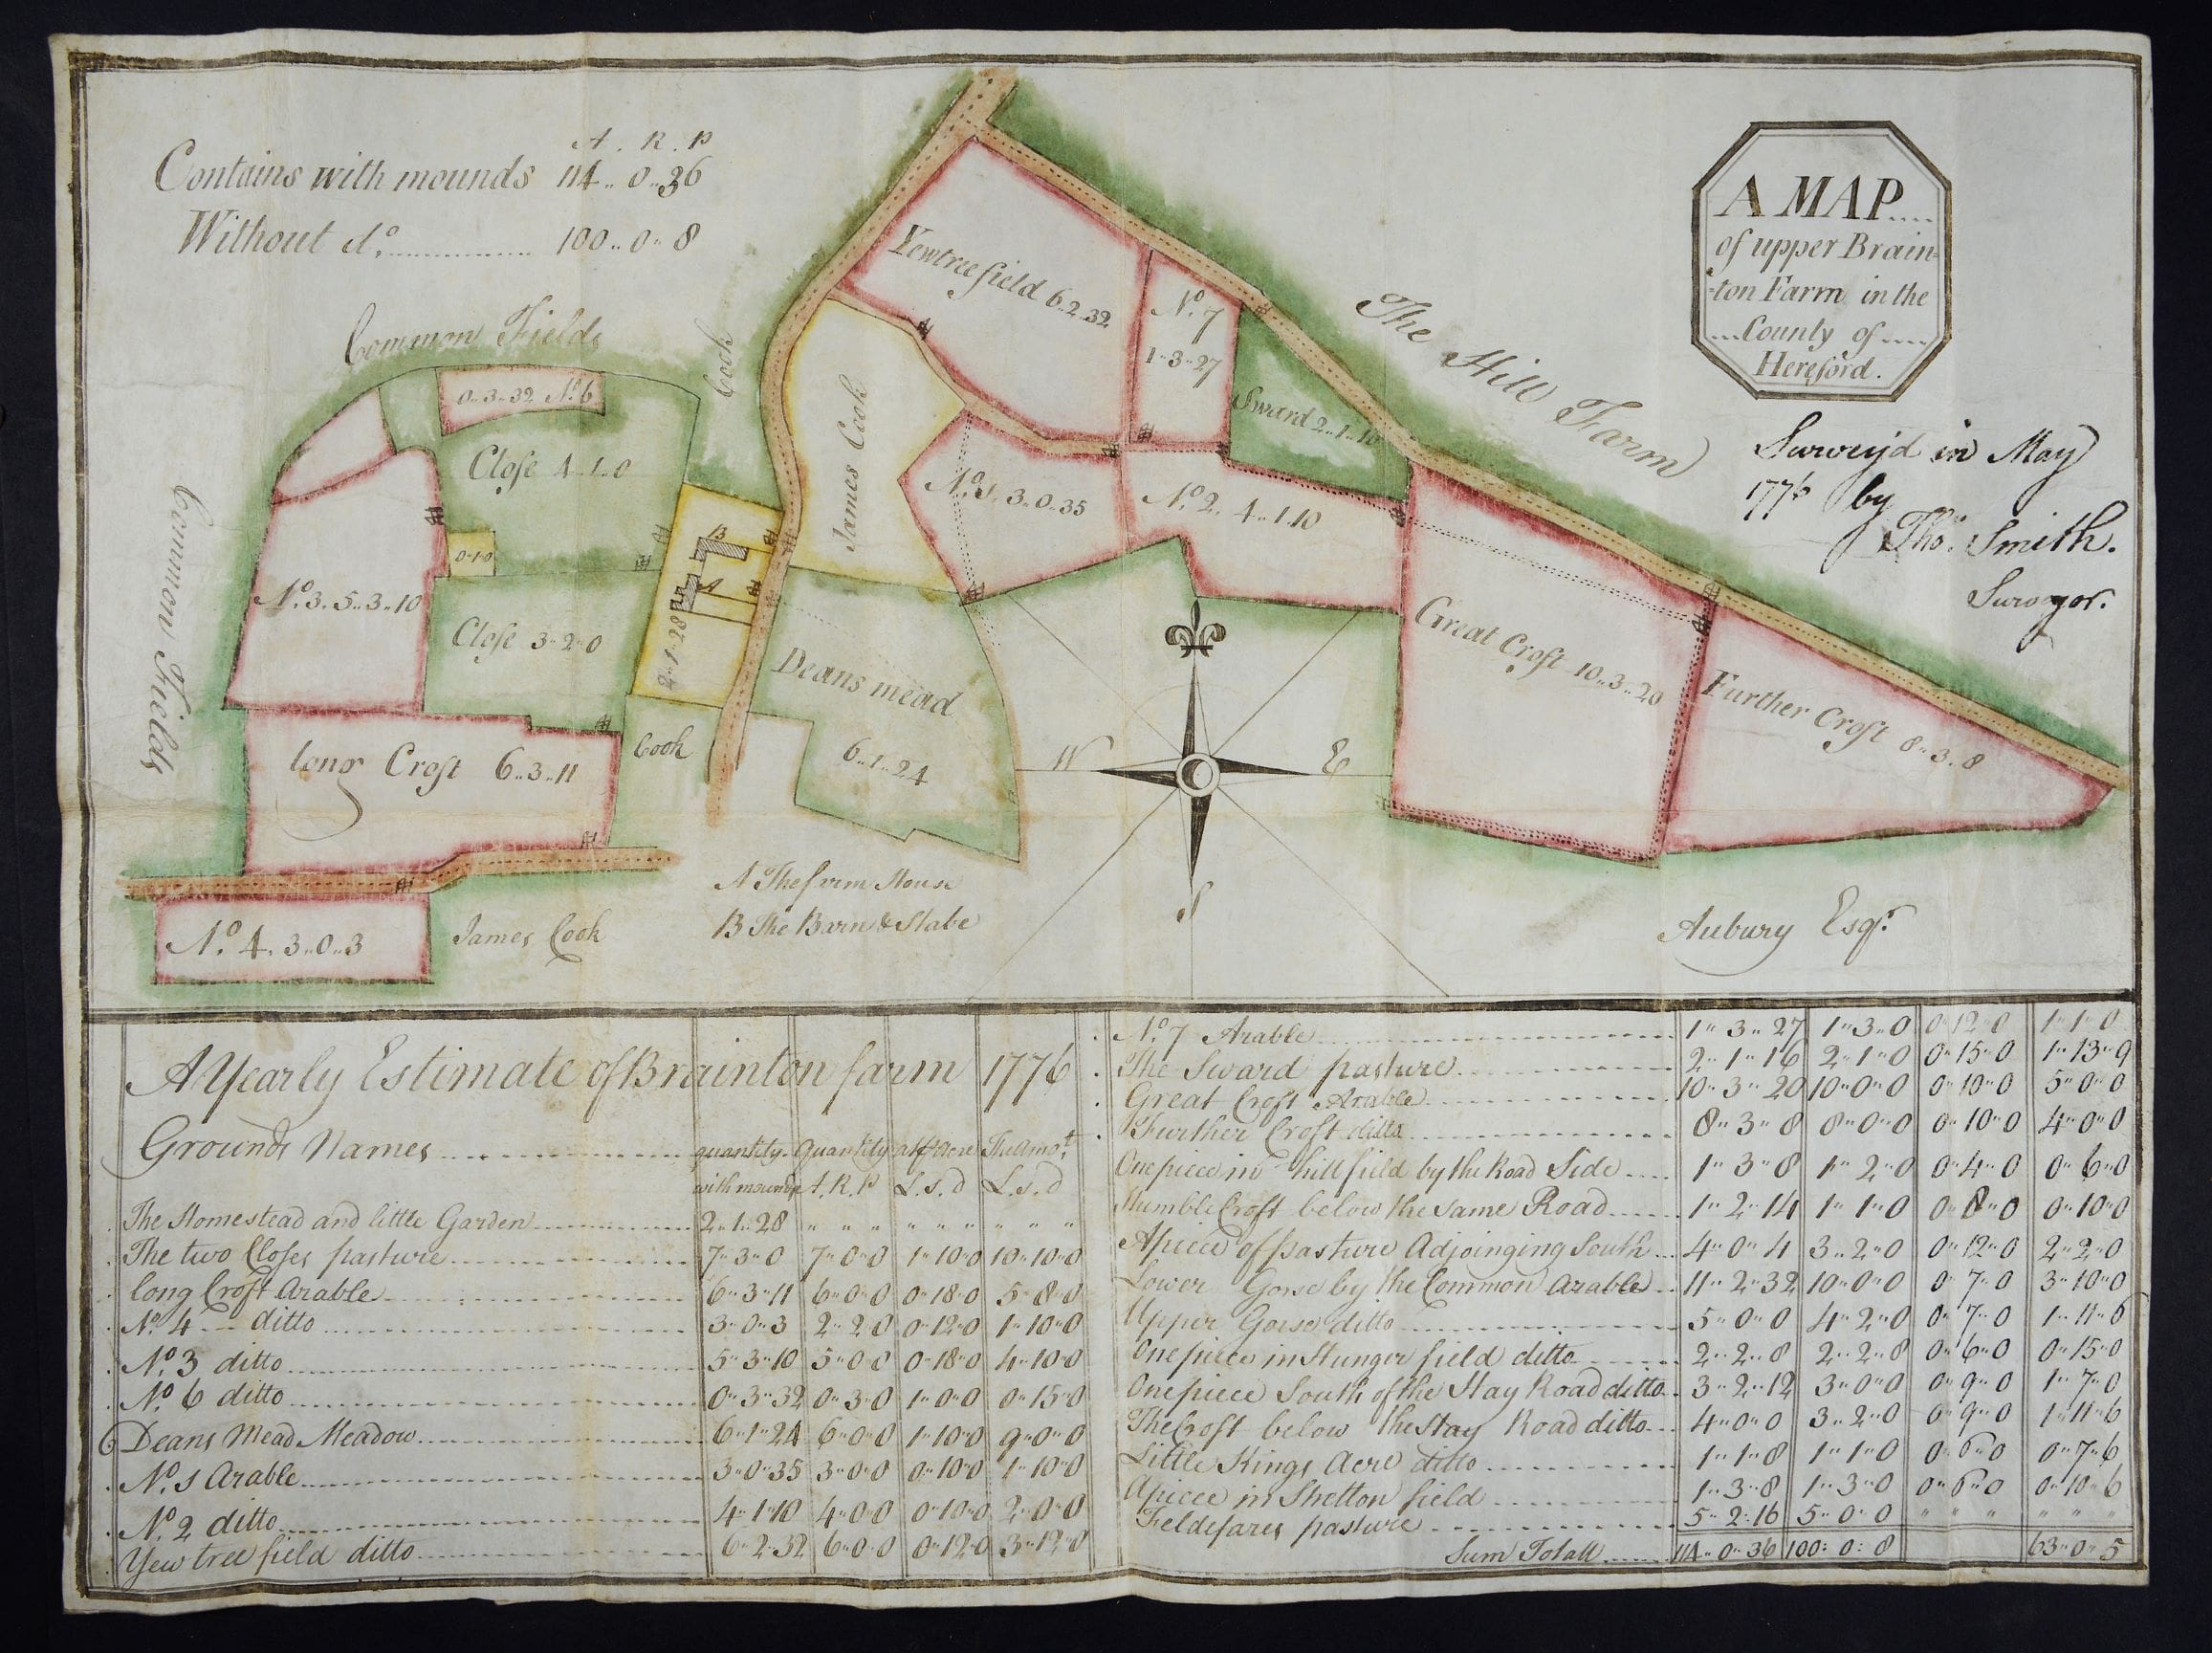 A . R . P
Contains with mounds 114 .. 0 .. 36
Without do. 100 .. 0 .. 8
A MAP
of upper Brain=
=ton Farm in the
County of
Hereford.
Survey'd in May
1776 by
Thos. Smith.
Surveyor.
Common Fields
Cook
Yewtree field 6..2..32
No. 7
1..3..27
The Hill Farm
Sward 2..1..16
0..3..32 No. 6
Close 4..1..0
James Cook
No. 1. 3..0..35
No. 2. 4..1..10
Common Fields
0-1-0
B
A
No. 3. 5..3..10
Close 3..2..0
2..1..28
Deans mead
6..1..24
Great Croft 10..3..20
Further Croft 8..3..8
long Croft 6..3..11
Cook
W
E
S
A The farm House
B The Barn & Stabe
No. 4. 3..0..3
James Cook
Aubury Esqr.
A Yearly Estimate of Brainton farm 1776
Grounds Names quantity Quantity att acre The Amot.
with mounds A. R. P L. s. d L. s. d
The Homestead and little Garden 2..1..28 " " " " " " " " "
The two Closes pasture 7..3..0 7..0..0 1..10..0 10..10..0
long Croft Arable 6..3..11 6..0..0 0..18..0 5..8..0
No. 4 ditto 3..0..3 2..2..0 0..12..0 1..10..0
No. 3 ditto 5..3..10 5..0..0 0..18..0 4..10..0
No. 6 ditto 0..3..32 0..3..0 1..0..0 0..15..0
Deans Mead Meadow 6..1..24 6..0..0 1..10..0 9..0..0
No. 1 Arable 3..0..35 3..0..0 0..10..0 1..10..0
No. 2 ditto 4..1..10 4..0..0 0..10..0 2..0..0
Yew tree field ditto 6..2..32 6..0..0 0..12..0 3..12..0
No. 7 Arable 1..3..27 1..3..0 0..12..0 1..1..0
The Sward pasture 2..1..16 2..1..0 0..15..0 1..13..9
Great Croft Arable 10..3..20 10..0..0 0..10..0 5..0..0
Further Croft ditto 8..3..8 8..0..0 0..10..0 4..0..0
One piece in hill field by the Road Side 1..3..8 1..2..0 0..4..0 0..6..0
Humble Croft below the same Road 1..2..14 1..1..0 0..8..0 0..10..0
A piece of pasture Adjoinging South 4..0..4 3..2..0 0..12..0 2..2..0
Lower Gorse by the Common Arable 11..2..32 10..0..0 0..7..0 3..10..0
Upper Gorse ditto 5..0..0 4..2..0 0..7..0 1..11..6
One piece in Hunger field ditto 2..2..8 2..2..8 0..6..0 0..15..0
One piece South of the Hay Road ditto 3..2..12 3..0..0 0..9..0 1..7..0
The Croft below the Hay Road ditto 4..0..0 3..2..0 0..9..0 1..11..6
Little Kings Acre ditto 1..1..8 1..1..0 0..6..0 0..7..6
A piece in Stretton field 1..3..8 1..3..0 0..6..0 0..10..6
Feldefares pasture 5..2..16 5..0..0 " " " " " "
Sum Totall 114..0..36 100:0:8 63..0..5